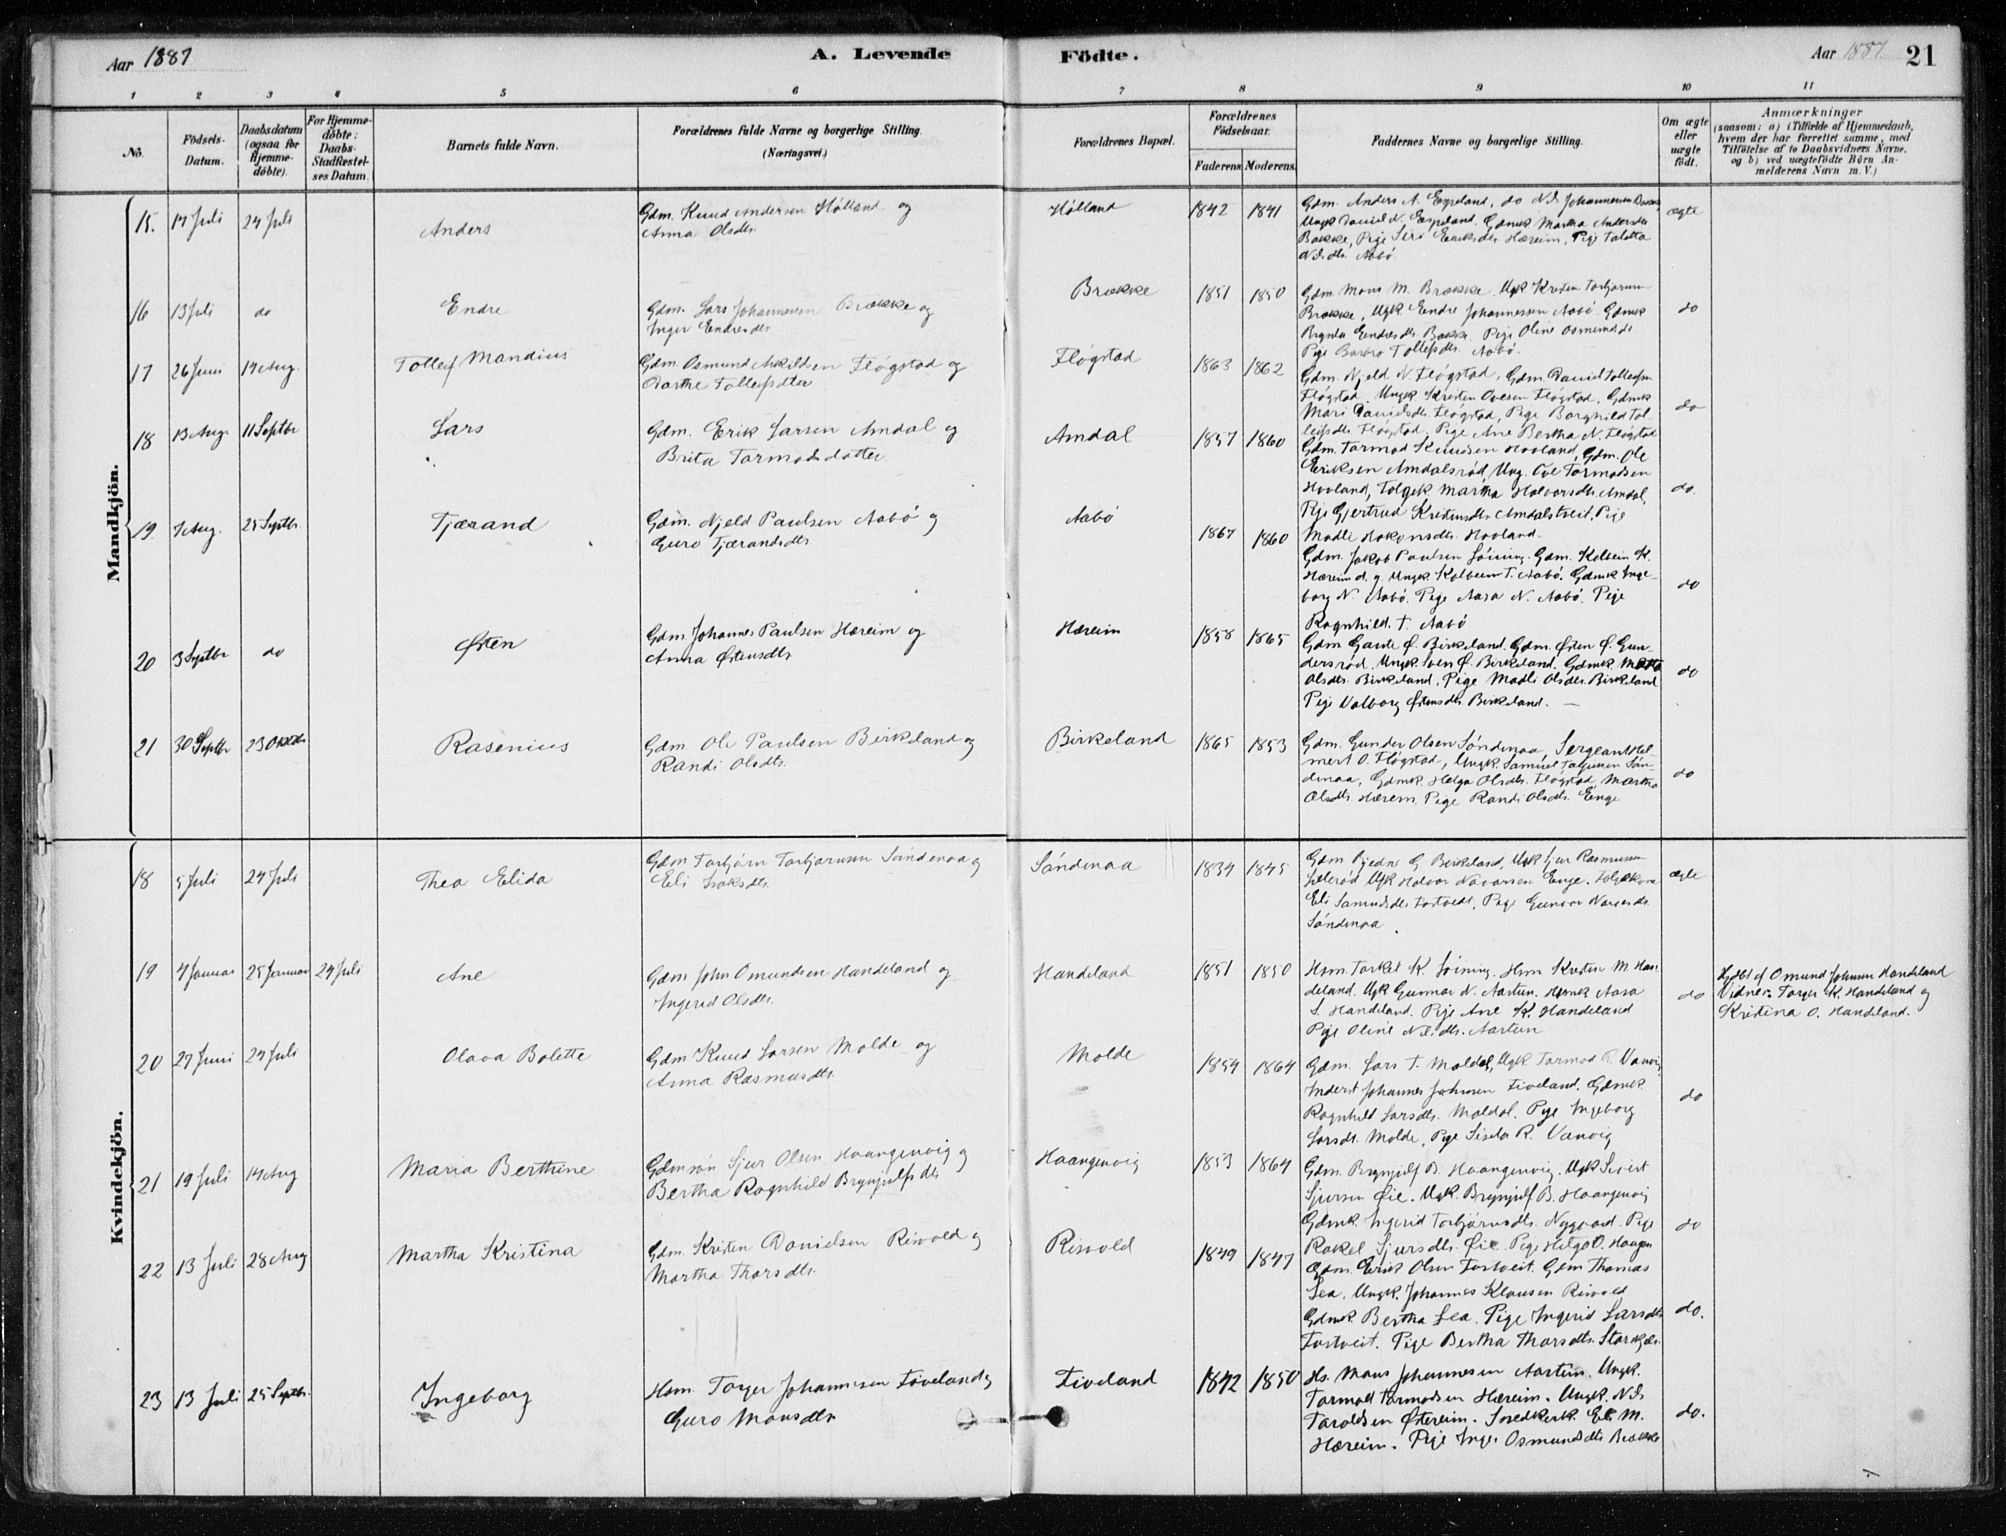 Aar 1887 A. Levende Födte. Aar 1887 21
1 2 3 4 5 6 7 8 9 10 11
No.
Födsels-
Datum.
Daabsdatum
(ogsaa for
Hjemme-
döbte).
For Hjemme-
döbte:
Daabs-
Stadfæstel-
ses Datum.
Barnets fulde Navn.
Forældrenes fulde Navne og borgerlige Stilling.
(Næringsvei.)
Forældrenes Bopæl.
Forældrenes
Födselsaar.
Faderens. Moderens.
Faddernes Navne og borgerlige Stilling.
Om ægte
eller
uægte
födt.
Anmærkninger
(saasom: a) i Tilfælde af Hjemmedaab,
hvem der har forrettet samme, med
Tilföielse af to Daabsvidners Navne,
og b) ved uægtefödte Börn An-
melderens Navn m. V.)
Mandkjön.
15. 17 Juli 24 Juli Anders
Gdm. Knud Andersen Hölland og
Anna Olsdtr.
Hölland 1842 1841
Gdm. Anders A. Espeland, do N.J. Johannesen
Ungk Daniel N. Espeland. Gdmk Martha Andersdtr
Bakke, Pige Siri Eriksdtr Hæreim, Pige
Aabö.
ægte
16 13 Juli do Endre
Gdm. Lars Johannesen Brække og
Inger Endresdtr
Brække 1851 1850
Gdm. Mons M. Brække. Ugk Kristen Torbjørnsen
Brække, Ugk Endre Johannesen Aabö. Gdmk
Endresdtr. Bakke. Pige Oline
Pige Barbro Tollefsdtr. Aabö.
do
17 26 Juni 14 Aug. Tollef Mandius
Gdm. Osmund Askildsen Flógstad og
Barthe Tollefsdtter
Flógstad 1863 1862
Gdm. Njeld N. Flógstad, Gdm. Daniel Tollefsen
Flógstad. Ungk. Kristen Ovesen Flógstad. Gdmk
Mari Danielsdtr. Flógstad, Pige Borghild Tol-
lefsdtr. Flógstad. Pige Ane Bertha N. Flógstad
do
18 13 Aug 11 Septbr Lars
Gdm. Erik Larsen Amdal og
Brita Tormodsdatter
Amdal 1857 1860
Gdm. Tormod Knudsen Hovland, Gdm. Ole
Eriksen Amdalsrød, Ung. Ove Tormodsen
Hovland, Martha Halvorsdtr. Amdal,
Pige Gjertrud Kristensdtr. Amdalstveit, Pige
Madli Hakonsdtr. Hovland.
do.
19 7 Aug. 25 Septbr Tjærand
Gdm. Njeld Paulsen Aabó og
Guro Tjærandsdtr
Aabó 1867 1860
Gdm. Jakob Paulsen Lóining. Gdm. Kolbein K.
Hæreim d. y. Ungk. Kolbein T. Aabó. Gdmk Inge-
borg N. Aabó. Pige Aasa N. Aabó. Pige
Ragnhild. T. Aabó
do
20 3 Septbr do Østen
Gdm. Johannes Paulsen Hæreim og
Anna Østensdtr
Hæreim 1858 1865
Gdm Gaute Ø. Birkeland. Gdm. Østen Ø. Gun-
dersrød. Ungk. Sven Ø. Birkeland. Gdmk.
Olsdtr. Birkeland, Pige Madli Olsdtr. Birkeland
Pige Valborg Østensdtr Birkeland. —
do
21 30 Septbr 23 Oktbr Rasenius
Gdm. Ole Paulsen Birkeland og
Randi Olsdtr.
Birkeland 1865 1853
Gdm. Gunder Olsen Söndenaa, Sergeant Hel-
mert O. Flógstad, Ungk. Samuel Torjusen Sön-
denaa, Gdmk. Helga Olsdtr. Flógstad, Martha
Olsdtr. Hæreim. Pige Randi Olsdtr. Enge
do
Kvindekjön.
18 5 Juli 24 Juli Thea Elida
Gdm Torbjørn Torbjørnsen Söndenaa og
Eli Isaksdtr.
Söndenaa 1834 1845
Gdm G. Birkeland, Ugk Sjur Rasmussen
Ugk Halvor Enge.
Eli Samuelsdtr Tortveit, Pige Gunvor
Söndenaa
ægte
19 4 Januar 25 Januar 24 Juli Ane
Gdm John Omundsen Handeland og
Ingerid Olsdtr.
Handeland 1851 1850
Hsm. Torkel K. Lóining. Hsm Kristen M. Han-
deland. Ugk Gunnar N. Aartun. Hsmk Aasa
S. Handeland. Pige Ane K. Handeland
Pige Oline N. dtr. Aartun
do
Hjdbt af Omund Johnsen Handeland
Vidner: Torger K. Handeland og
Kristina O. Handeland.
20 27 Juni 24 Juli Olava Bolette
Gdm Knud Larsen Molde og
Anna Rasmusdtr.
Molde 1854 1864
Gdm. Lars T. Moldal, Ugk Tormod R. Vanvig
Inderst Johannes Johnsen Tiveland. Gdmk
Ragnhild Larsdtr. Moldal. Pige Ingeborg
Larsdt. Molde, Pige Sisela R. Vanvig
do
21 19 Juli 14 Aug Maria Berthine
Gdmsøn Sjur Olsen Haangenvig og
Bertha Ragnhild Brynjulfsdtr
Haangenvig 1853 1864
Gdm. Brynjulf B. Haangenvig. Ugk Sivert
Sjursen Øie. Ugk. Brynjulf B. Haangenvig
Gdmk. Ingerid Torbjørnsdtr. Nygaard. Pige
Rakel Sjursdtr. Øie. Pige Helga O. Haugen
do
22 13 Juli 28 Aug Martha Kristina
Gdm. Kristen Danielsen Risvold og
Martha Thorsdtr.
Risvold 1849 1847
Gdm. Erik Olsen Tortveit. Gdm Thomas
Lea. Ungk. Johannes Klausen Risvold
Gdmk Bertha Lea. Pige Ingerid Larsdtr.
Tortveit. Pige Bertha Thorsdtr.
do.
23 13 Juli 25 Septbr. Ingeborg
Hsm. Torger Johannesen Tiveland og
Guro Monsdtr.
Tiveland 1842 1850
Hs. Mons Johannesen Aartun. Ungk.
Tormod Tormodsen Hæreim. Ungk. N.J.
Taroldsen Østereim. Eli M.
Hæreim. Pige Inger Osmundsdtr Brække
do.